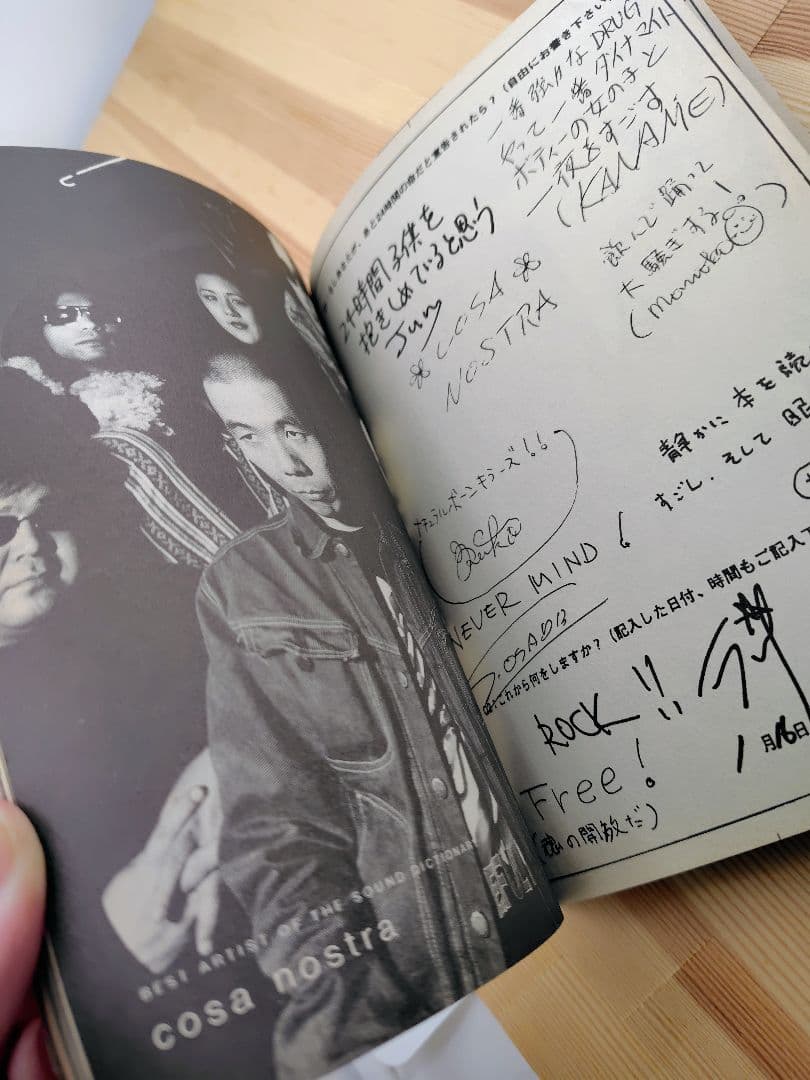 BEST ARTIST OF THE SOUND DICTIONARY
cosa nostra
あと24時間の命だと宣告されたら？（自由にお書き下さい
一番強力なDRUG
やって一番ダイナマイト
ボディーの女の子と
一夜をすごす。
(KANAME)
24時間子供を
抱きしめていると思う
Jun
COSA
NOSTRA
飲んで踊って
大騒ぎする！
(momoko)
静かに本を読
すごし、そして
ナチュラルボーンキラーズ!!
Reiko
NEVER MIND!
これから何をしますか？（記入した日付、時間もご記入下
ROCK!!
Free!
の開放だ)
1月16日